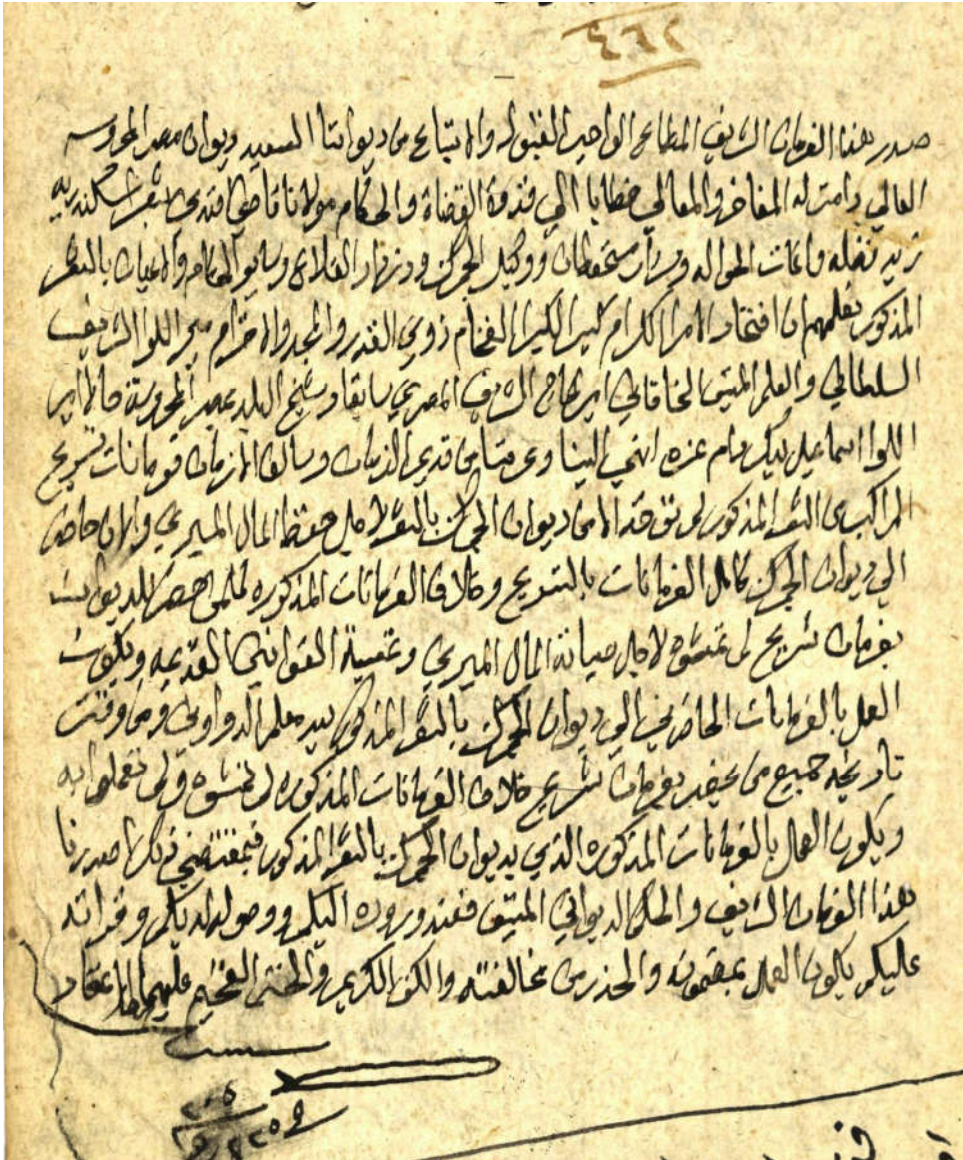 ٤٦٢
صدر هذا الفرمان الشريف المطاع الواجب القبول والاتباع من ديواننا السعيد ديوان مصر المحروسه
العالي دامت له المفاخر والمعالي خطابا الي قدوة القضاة والحكام مولانا قاضي افندي بثغر اسكندريه
زيد فضله واغات الحواله وسردار مستحفظان ووكيل الجمرك ودزدار القلاع وساير الحكام والاعيان بالثغر
المذكور نعلمهم ان افتخار الامرا الكرام كبير الكبرا الفخام ذوي القدر والمجد والاحترام مير اللوا الشريف
السلطاني والعلم المنيف الخاقاني امير الحاج الشريف المصري سابقا وشيخ البلد بمصر المحروسة حالا امير
اللوا اسماعيل بيك دام عزه انهي الينا وعرفنا من قديم الزمان وسالف الازمان فرمانات تسريح
المراكب من الثغر المذكور لم توخذ الا من ديوان الجمرك بالثغر لاجل حفظ المال الميري والان حاضر
الي ديوان الجمرك كامل الفرمانات بالتسريح وخلاف الفرمانات المذكوره كلمن احضر للديوان
بفرمان تسريح لم تمشوه لاجل صيانة المال الميري وتمشية القوانين القديمه ويكون
العمل بالفرمانات الحاضرين الي ديوان الجمرك بالثغر المذكور بيد معلم الدواوين ومن وقت
تاريخه جميع من يحضر بفرمان تسريح خلاف الفرمانات المذكوره لم تمشوه ولم تعملوا به
ويكون العمل بالفرمانات المذكوره الذي بديوان الجمرك بالثغر المذكور فبمقتضي ذلك اصدرنا
هذا الفرمان الشريف والحكم الديواني المنيف فعند وروده اليكم ووصوله لديكم وقراته
عليكم يكون العمل بمضمونه والحذر من مخالفته والكف الكريم والختم الفخيم عليهما الاعتماد